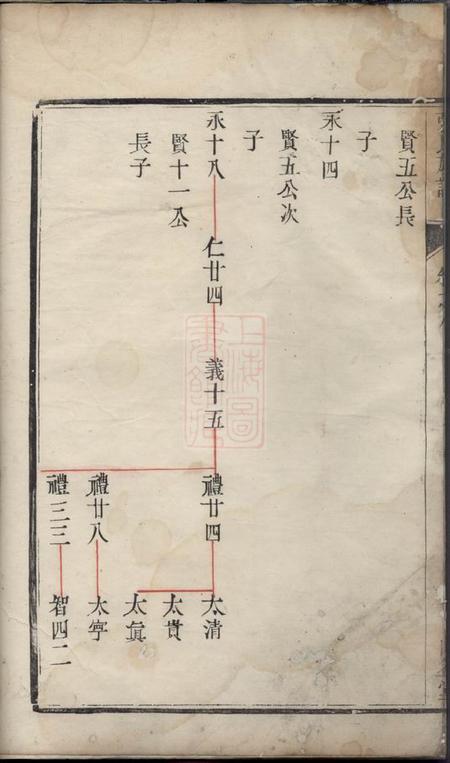 賢五公長
子
永十四
賢五公次
子
永十八
賢十一公
長子
仁廿四
義十五
禮廿四
禮廿八
禮三三
太清
太貴
太眞
太寕
智四二
上海圖